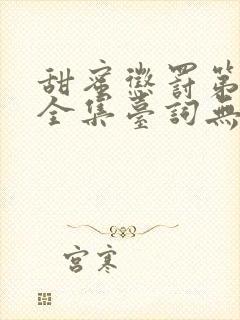 甜蜜懲罰第
全集臺詞無
宮寒